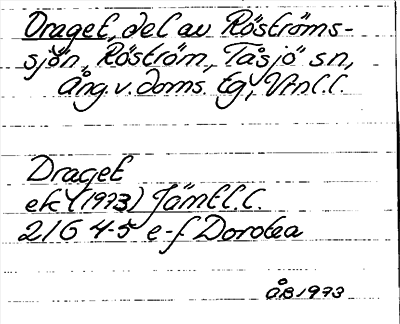 Draget, del av Röströms-
sjön, Röström, Tåsjö sn,
Ång. v. doms. tg, Vrnl. l.
Draget
ek (1973) Jämtl. l.
21G 4-5 e-f Dorotea
ÅB 1973